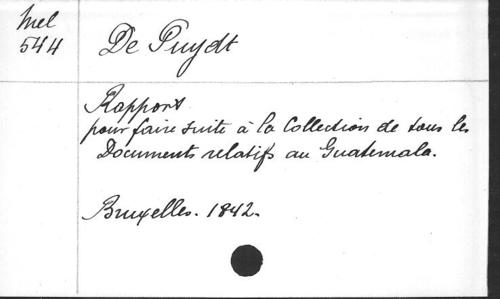 Mel
544
De Puydt
Rapport
pour faire suite à la Collection de tous les
Documents relatifs au Guatemala.
Bruxelles. 1842.